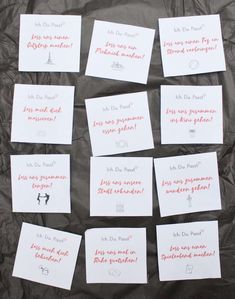 Ich Du Paust
Lass uns einen
Filmtrip machen!
Ich Du Paust
Lass uns ein
Picknick machen!
Ich Du Paust
Lass uns einen Tag am
Strand verbringen!
Ich Du Paust
Lass mich dich
massieren!
Ich Du Paust
Lass uns zusammen
essen gehen!
Ich Du Paust
Lass uns zusammen
ins Kino gehen!
Ich Du Paust
Lass uns zusammen
tanzen!
Ich Du Paust
Lass uns unsere
Stadt erkunden!
Ich Du Paust
Lass uns zusammen
wandern gehen!
Ich Du Paust
Lass mich dich
bekochen!
Ich Du Paust
Lass uns mal in
Ruhe quatschen!
Ich Du Paust
Lass uns einen
Spieleabend machen!